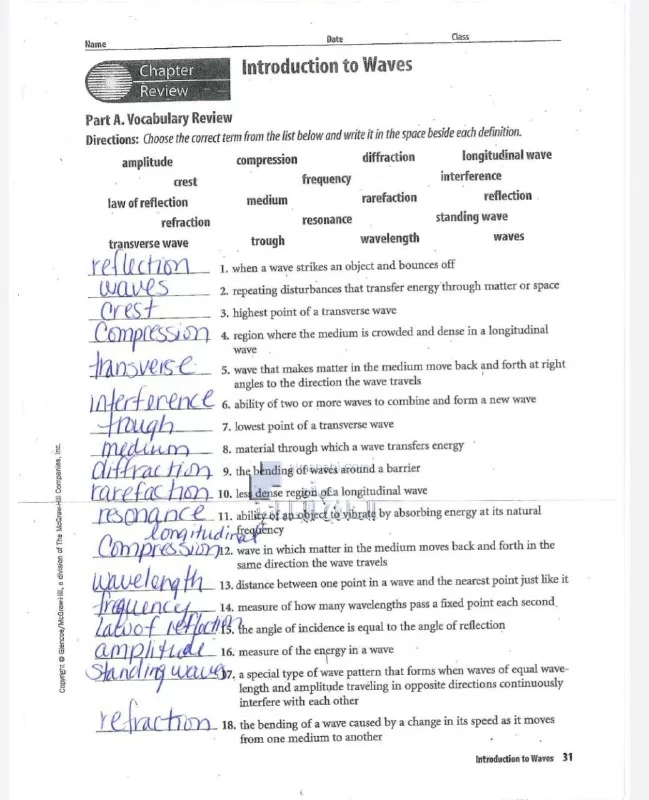 Name Date Class
Chapter Review
Introduction to Waves
Part A. Vocabulary Review
Directions: Choose the correct term from the list below and write it in the space beside each definition.
amplitude compression diffraction longitudinal wave
crest frequency interference
law of reflection medium rarefaction reflection
refraction resonance standing wave
transverse wave trough wavelength waves
reflection 1. when a wave strikes an object and bounces off
waves 2. repeating disturbances that transfer energy through matter or space
Crest 3. highest point of a transverse wave
Compression 4. region where the medium is crowded and dense in a longitudinal
wave
transverse 5. wave that makes matter in the medium move back and forth at right
angles to the direction the wave travels
interference 6. ability of two or more waves to combine and form a new wave
trough 7. lowest point of a transverse wave
medium 8. material through which a wave transfers energy
diffraction 9. the bending of waves around a barrier
rarefaction 10. less dense region of a longitudinal wave
resonance 11. ability of an object to vibrate by absorbing energy at its natural
longitudinal frequency
Compression 12. wave in which matter in the medium moves back and forth in the
same direction the wave travels
wavelength 13. distance between one point in a wave and the nearest point just like it
frequency 14. measure of how many wavelengths pass a fixed point each second
Law of reflection 15. the angle of incidence is equal to the angle of reflection
amplitude 16. measure of the energy in a wave
Standing waves 17. a special type of wave pattern that forms when waves of equal wave-
length and amplitude traveling in opposite directions continuously
interfere with each other
refraction 18. the bending of a wave caused by a change in its speed as it moves
from one medium to another
Introduction to Waves 31
Copyright © Glencoe/McGraw-Hill, a division of The McGraw-Hill Companies, Inc.